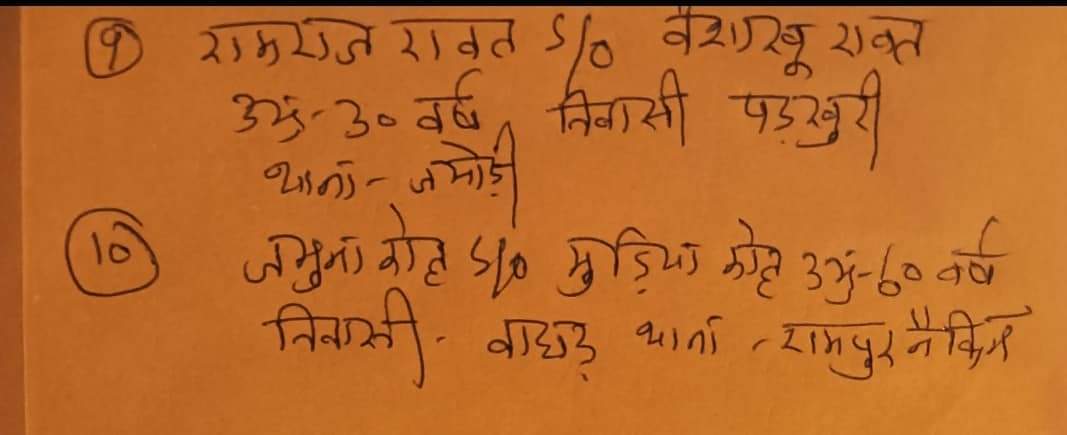 (9) रामराज रावत S/o वैशाखू रावत
उम्र-30 वर्ष, निवासी पड़खुरी
थाना- जमोड़ी
(10) जमुना कोल S/o मुड़िया कोल उम्र-60 वर्ष
निवासी- बाघड़ थाना - रामपुर नैकिन